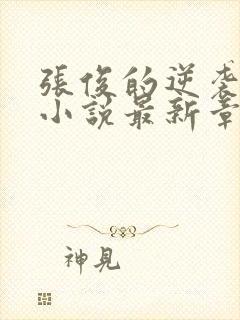 張俊的逆袭
小說最新章
神見